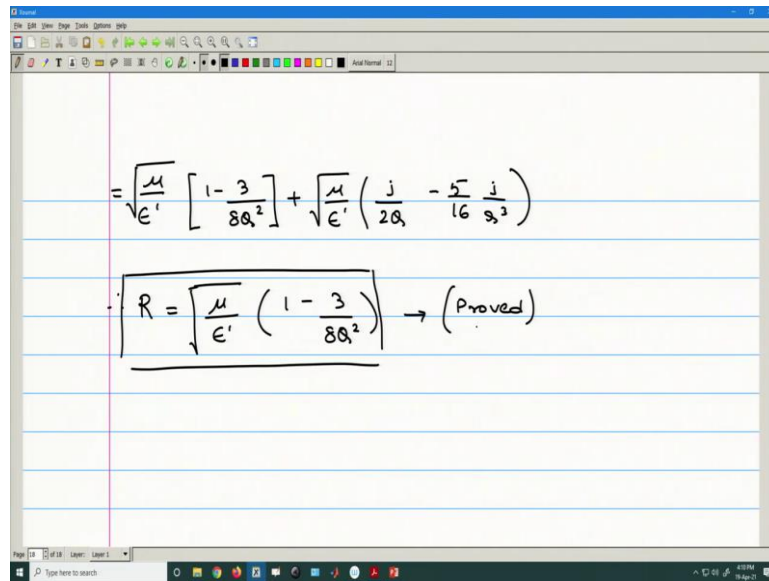 Journal
File Edit View Page Tools Options Help
Arial Normal 12
= √(μ/ϵ') [1 - 3/8Q²] + √(μ/ϵ') (j/2Q - 5/16 j/Q³)
∴ R = √(μ/ϵ') (1 - 3/8Q²) → (Proved)
Page 18 of 18 Layer: Layer 1
Type here to search
4:10 PM
19-Apr-21